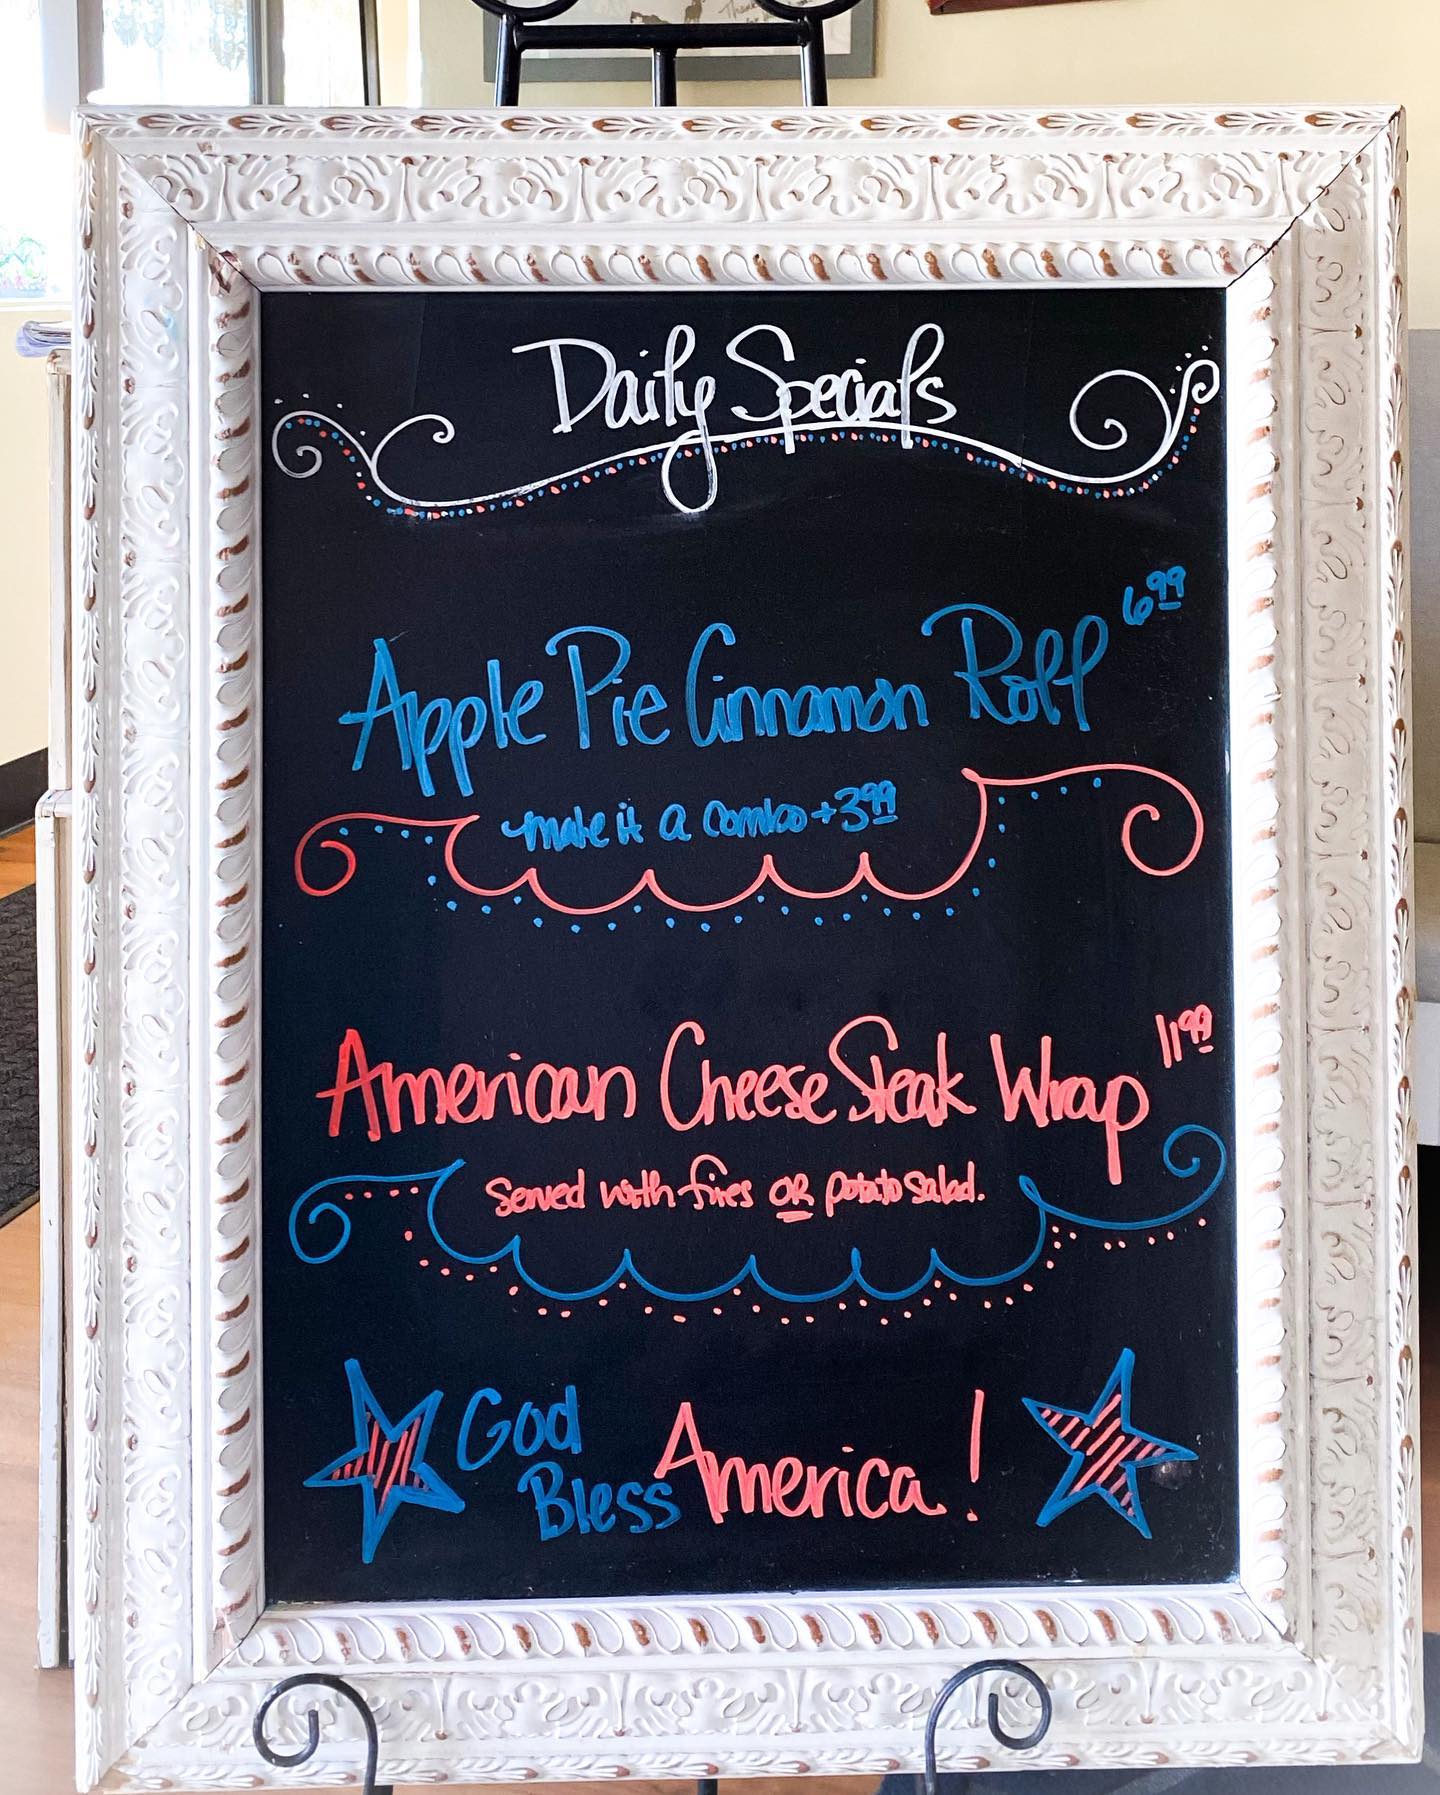 Daily Specials
Apple Pie Cinnamon Roll 6.99
make it a combo + 3.99
American Cheese Steak Wrap 11.99
served with fries OR potato salad.
God
Bless America!